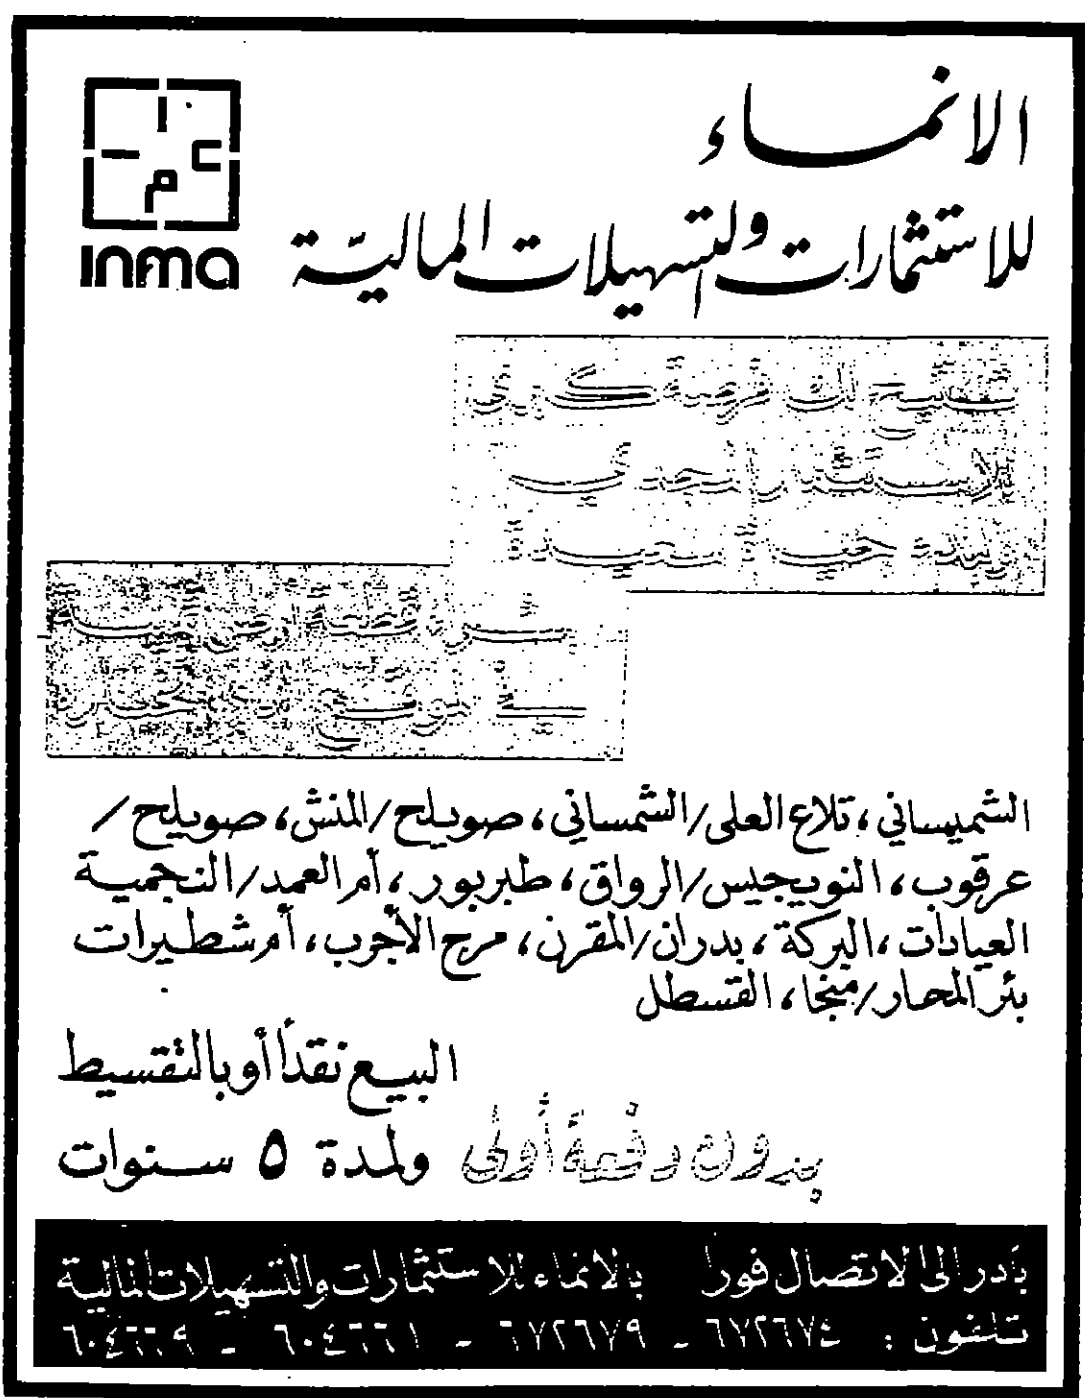 الانماء
للاستثمارات والتسهيلات الماليّة
INMA
تتيح لك فرصة كبرى
للاستثمار المجدي
الشميساني، تلاع العلى/الشمساني، صويلح/المنش، صويلح/
عرقوب، النويجيس/الرواق، طبربور، أم العمد/النجمية
العيادات، البركة، بدران/المقرن، مرج الأجرب، أم شطيرات
بئر المحار/منجا، القسطل
البيع نقداً أو بالتقسيط
بدون دفعة أولى ولمدة ٥ سنوات
بادر الى الاتصال فوراً بالانماء للاستثمارات والتسهيلات المالية
تلفون : ٦٧٢٦٧٤ - ٦٧٢٦٧٩ - ٦٠٤٦٦١ - ٦٠٤٦٦٩